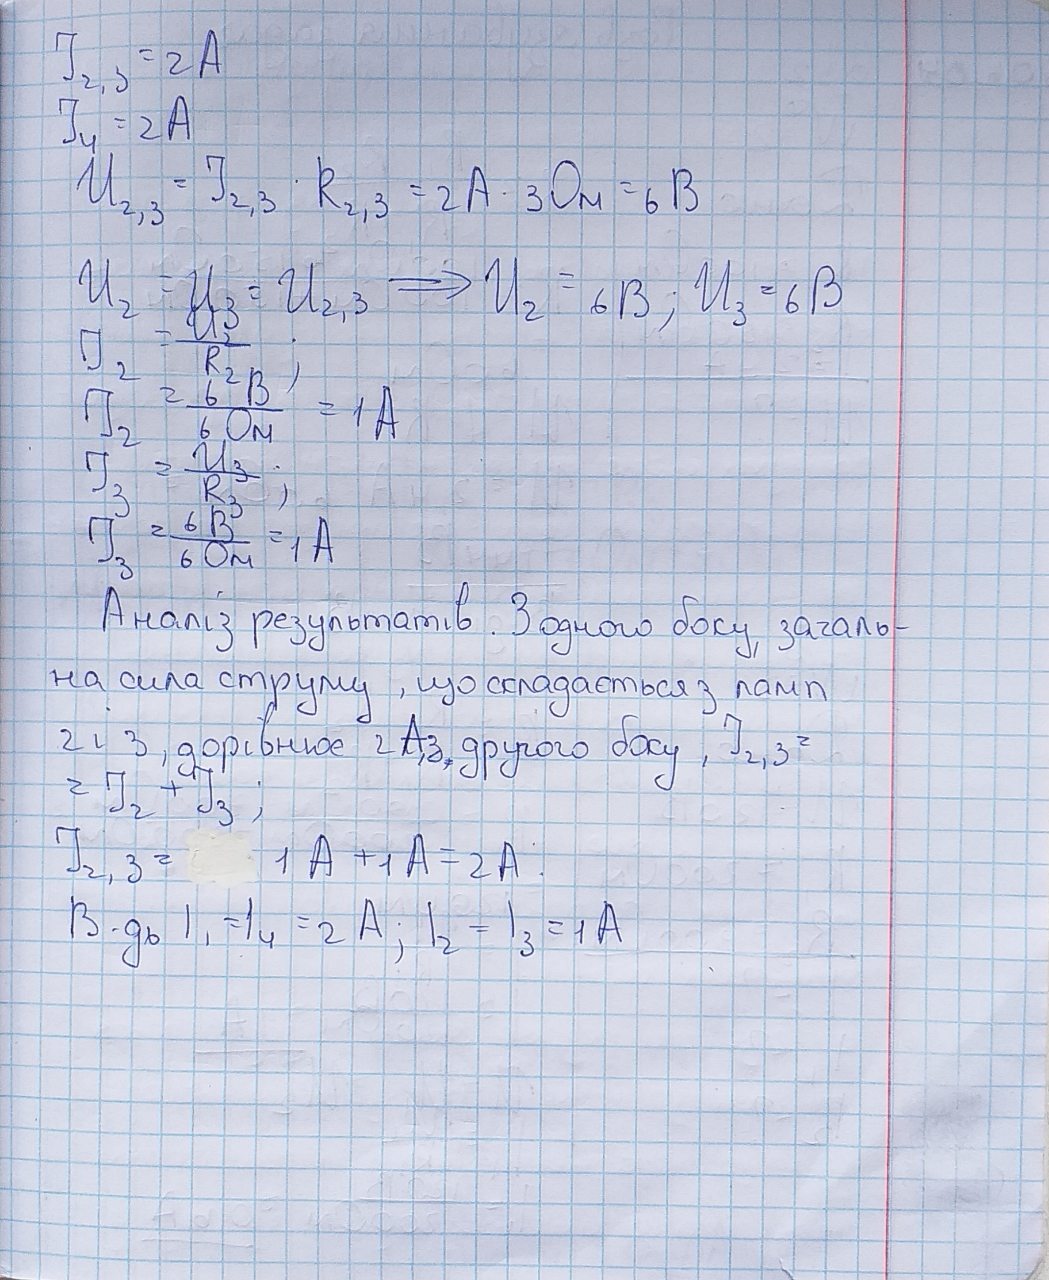 I₂,₃ = 2 А
I₄ = 2 А
U₂,₃ = I₂,₃ · R₂,₃ = 2 А · 3 Ом = 6 В
U₂ = U₃ = U₂,₃ ⟹ U₂ = 6 В; U₃ = 6 В
I₂ = U₂/R₂ ;
I₂ = 6 В/6 Ом = 1 А
I₃ = U₃/R₃ ;
I₃ = 6 В/6 Ом = 1 А
Аналіз результатів. З одного боку, загаль-
на сила струму, що складається з ламп
2 і 3, дорівнює 2 А, з другого боку, I₂,₃ =
= I₂ + I₃ ;
I₂,₃ = 1 А + 1 А = 2 А.
В-дь I₁ = I₄ = 2 А; I₂ = I₃ = 1 А